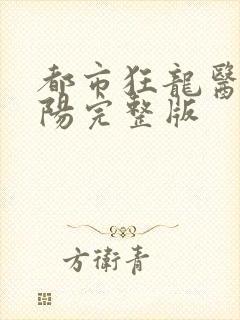 都市狂龍醫
陽完整版
方衛青